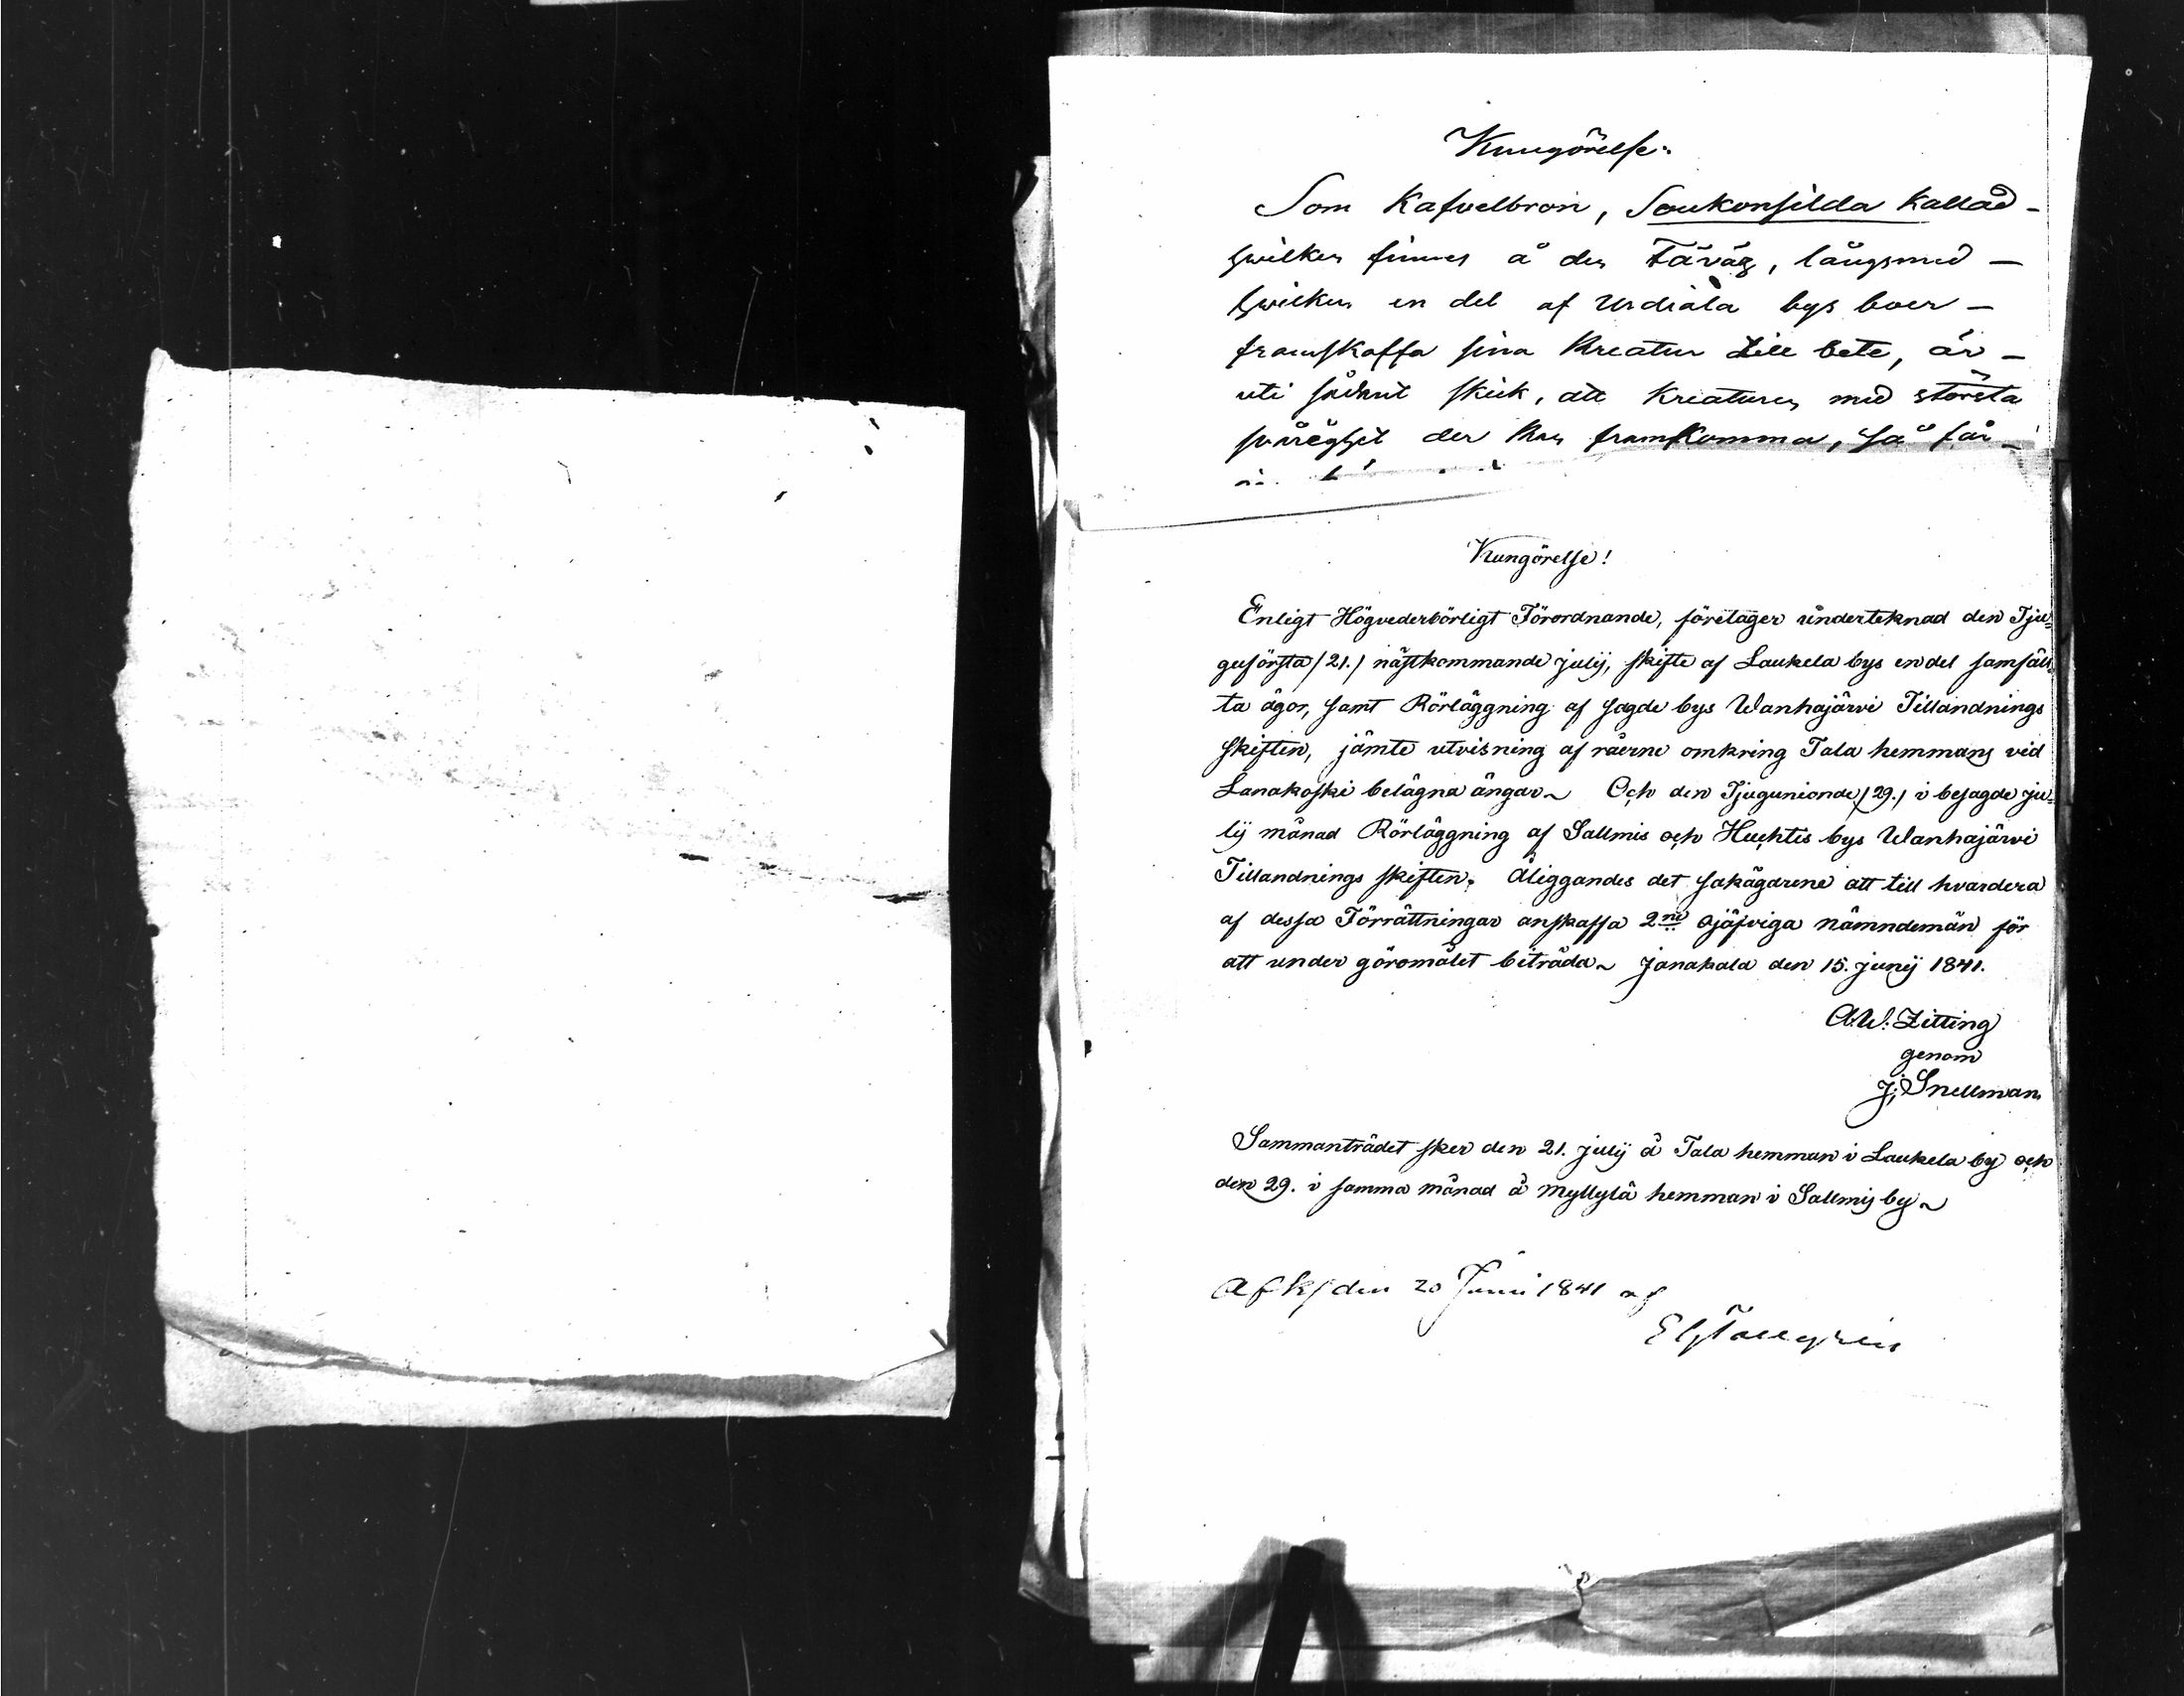 Kungörelse.
Som Kafvelbron, Soukonsilda kallad -
hvilken finnes å den Fäväg, långsmed -
hvilken en del af Urdiala bys boer -
framskaffa sina Kreatur till bete, är -
uti sådant skick, att Kreaturen med största
svårighet der kan framkomma, så får -
Kungörelse!
Enligt Högvederbörligt Förordnande, företager underteknad den Tju=
guförsta /21./ nästkommande julij, skifte af Laukela bys en del samfäll=
ta ägor, samt Rörläggning af sagde bys Wanhajärvi Tillandnings
skiften, jämte utvisning af råerne omkring Tala hemmans vid
Lanakoski belägna ängar~ Och den Tjugunionde /29./ i besagde ju=
lij månad Rörläggning af Sallmis och Huhtis bys Wanhajärvi
Tillandnings skiften. Åliggandes det sakägarene att till hvardera
af dessa Förrättningar anskaffa 2ne ojäfviga nämndemän för
att under göromålet biträda~ Janakala den 15. junij 1841.
A.W. Zitting
genom
J. Snellman
Sammanträdet sker den 21. julij å Tala hemman i Laukela by och
den 29. i samma månad å Myllylä hemman i Sallmis by~
Afk/ den 20 Juni 1841 af